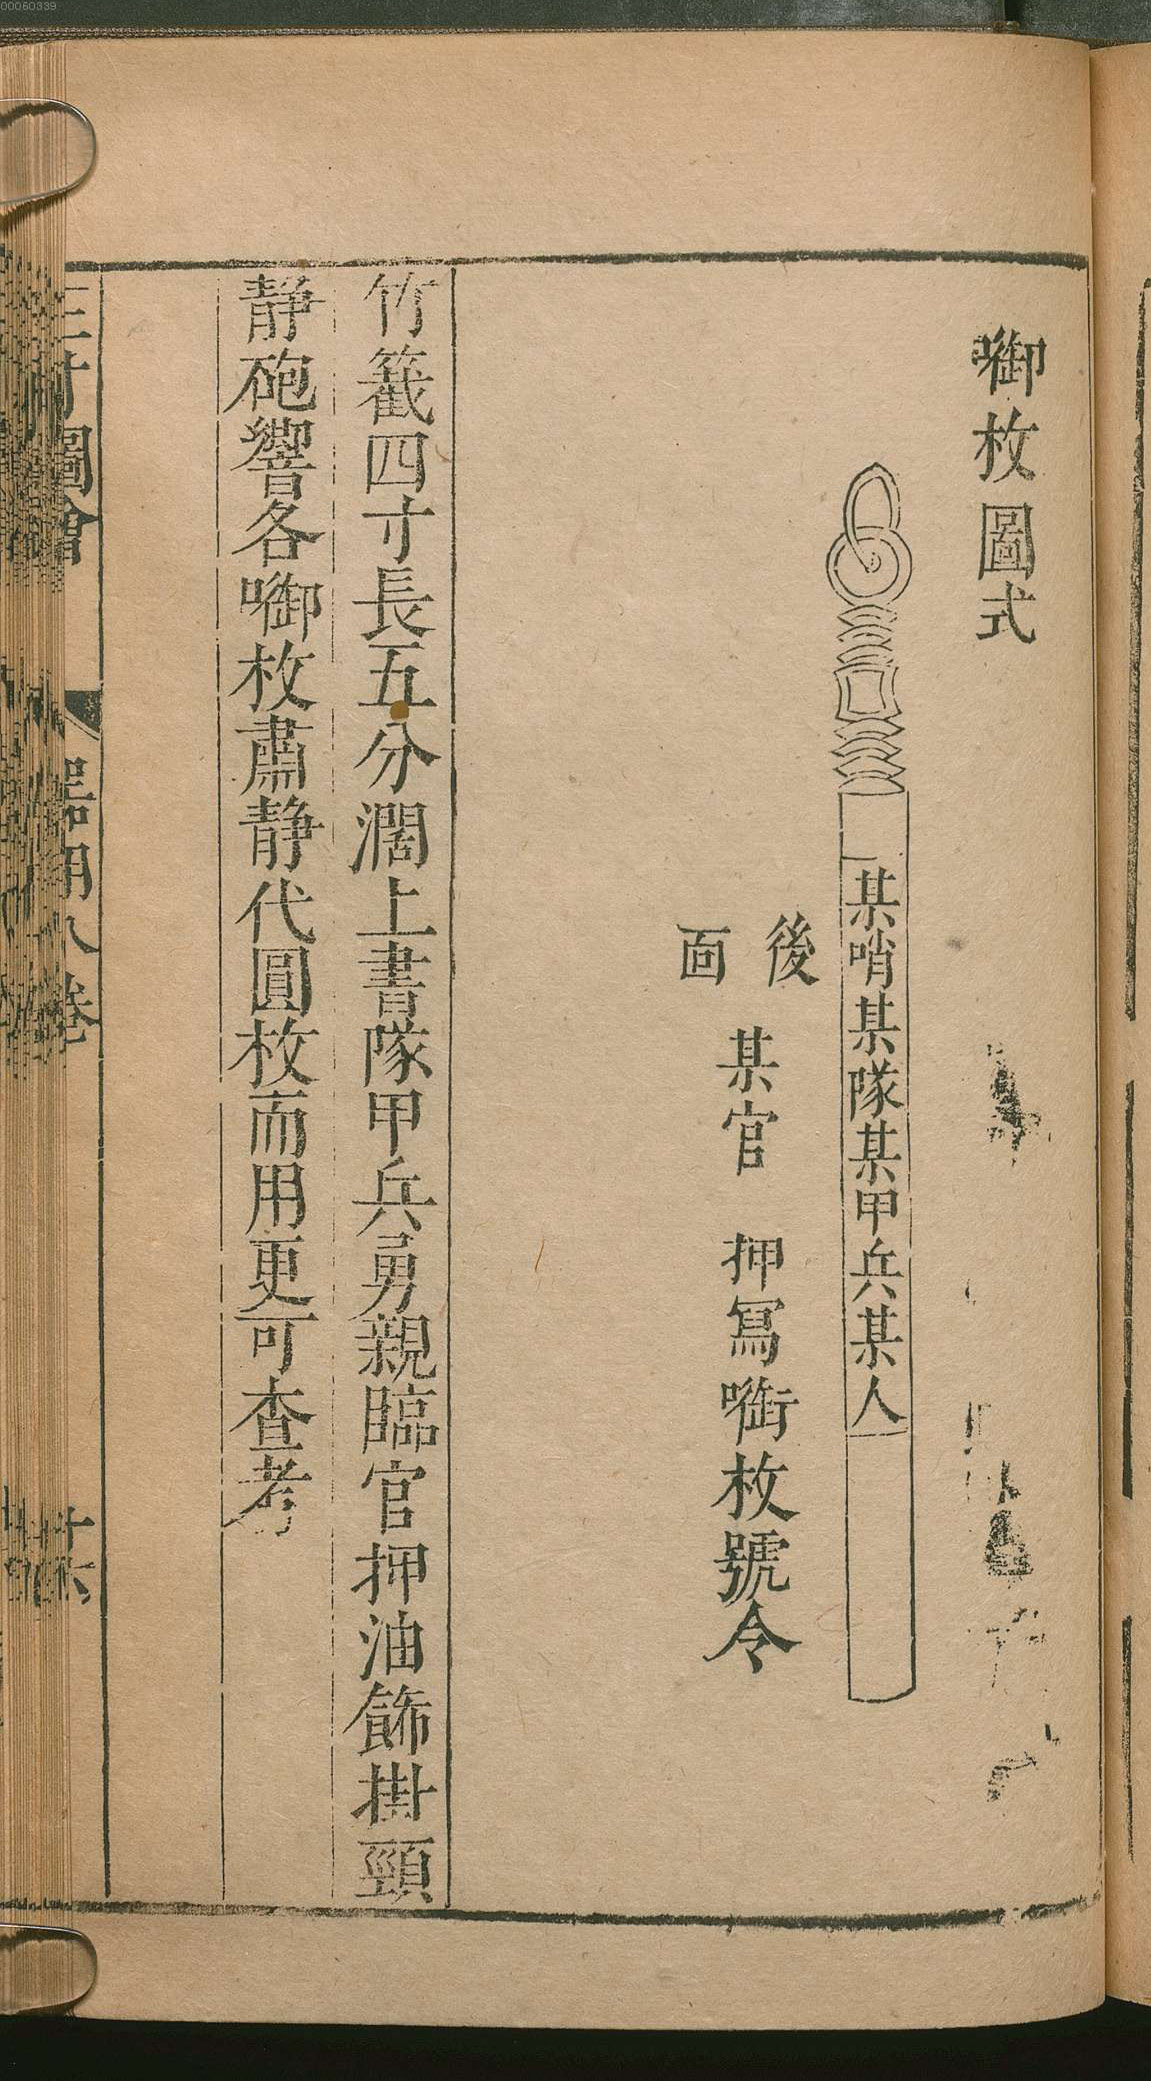 00060339
啣枚圖式
某哨某隊某甲兵某人
後面
某官 押寫㘅枚號令
竹籤四寸長五分濶上書隊甲兵勇親臨官押油飾掛頸
静砲響各啣枚肅静代圓枚而用更可查考
三才圖會 器用八卷 十六